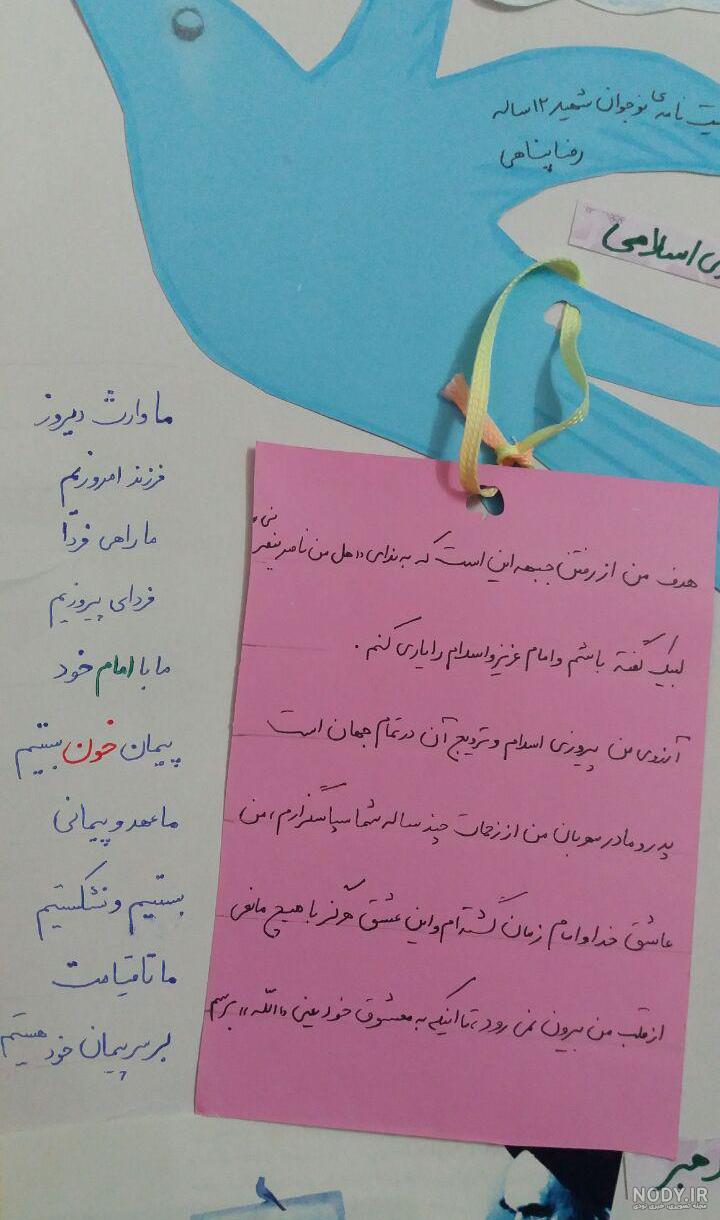 نامه‌ی نوجوان شهید ۱۲ ساله
رضا پناهی
اسلامی
ما وارث دیروز
فرزند امروزیم
ما راهی فردا
فردای پیروزیم
ما با امام خود
پیمان خون بستیم
ما عهد و پیمانی
بستیم و نشکستیم
ما تا قیامت
بر سر پیمان خود هستیم
هدف من از رفتن جبهه این است که به ندای «هل من ناصر ینصرنی»
لبیک گفته باشم و امام عزیز و اسلام را یاری کنم.
آرزوی من پیروزی اسلام و ترویج آن در تمام جهان است
پدر و مادر مهربان من از زحمات چند ساله شما سپاسگزارم، من
عاشق خدا و امام زمان گشته ام و این عشق هرگز با هیچ مانعی
از قلب من بیرون نمی رود، تا اینکه به معشوق خود یعنی «الله» برسم
رهبر
NODY.IR